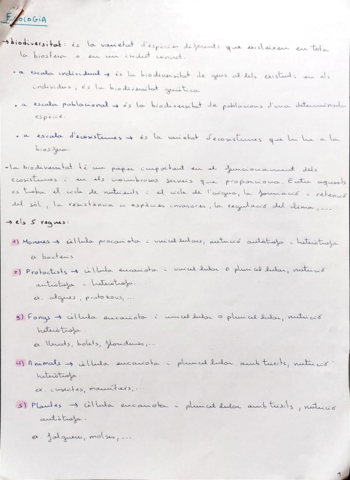 ECOLOGIA
→ biodiversitat: és la varietat d'espècies diferents que existeixen en tota
la biosfera o en un indret concret.
• a escala individual → és la biodiversitat de gens al·lels existents en els
individus, és la biodiversitat genètica
• a escala poblacional → és la biodiversitat de poblacions d'una determinada
espècie.
• a escala d'ecosistemes → és la varietat d'ecosistemes que hi ha a la
biosfera
- La biodiversitat té un paper important en el funcionament dels
ecosistemes i en els nombrosos serveis que proporciona. Entre aquests
es troba el cicle de nutrients i el cicle de l'aigua, la formació i retenció
del sòl, la resistència a espècies invasores, la regulació del clima,...
→ els 5 regnes:
1) Moneres → cèl·lula procariota i unicel·lulars, nutrició autòtrofa i heteròtrofa
ex. bacteris
2) Protoctists → cèl·lula eucariota - unicel·lular o pluricel·lular, nutrició
autòtrofa i heteròtrofa.
ex. algues, protozous,...
3) Fongs → cèl·lula eucariota - unicel·lular o pluricel·lular, nutrició
heteròtrofa.
ex. llevats, bolets, floridures,...
4) Animals → cèl·lula eucariota - pluricel·lular amb teixits, nutrició
heteròtrofa
ex. insectes, mamífers,...
5) Plantes → cèl·lula eucariota - pluricel·lular amb teixits, nutrició
autòtrofa.
ex. falgueres, molses,...